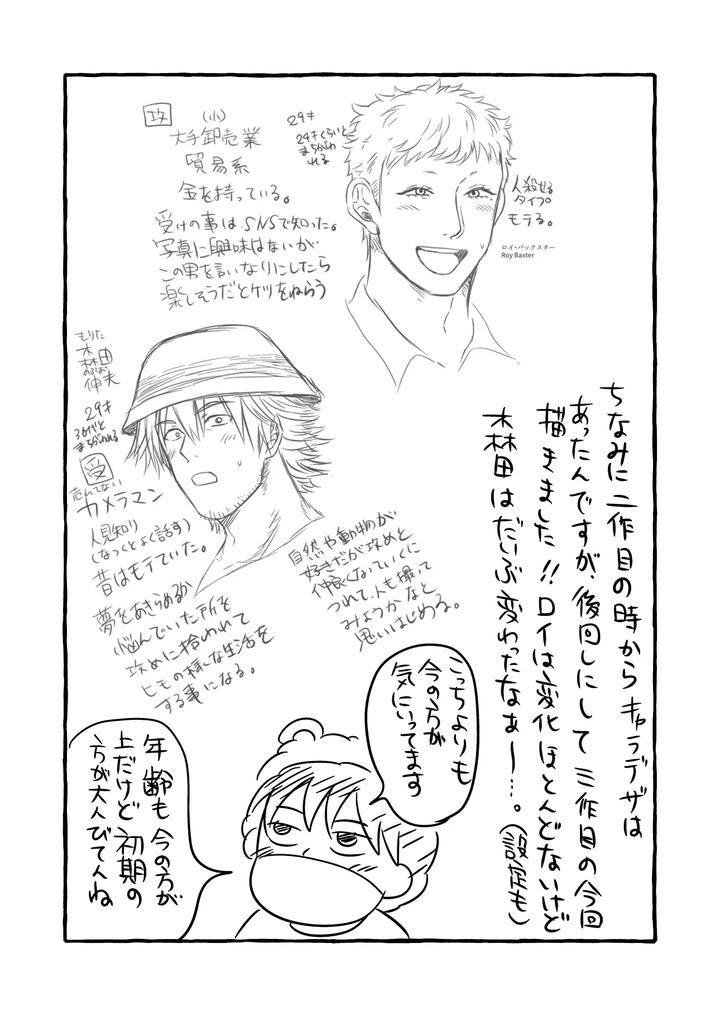 攻
(小)
大手卸売業
貿易系
金を持っている。
受けの事はSNSで知った。
写真に興味はないが
この男を言いなりにしたら
楽しそうだとケツをねらう
29才
29才くらいと
まちがわ
れる
人殺せる
タイプ
モテる。
ロイ・バックスター
Roy Baxter
もりた
木林田
のぶお
伸夫
29才
30代と
まちがわれる
受
売れてない
カメラマン
人見知り
(なつくとよく話す)
昔はモテていた。
夢をあきらめるか
悩んでいた所を
攻めに拾われて
ヒモの様な生活を
する事になる。
自然や動物が
好きだが攻めと
仲良くなっていくに
つれて、人も撮って
みようかなと
思いはじめる。
ちなみに二作目の時からキャラデザは
あったんですが、後回しにして三作目の今回
描きました!!ロイは変化ほとんどないけど
木林田はだいぶ変わったなぁ〜…。(設定も)
こっちよりも
今の方が
気にいってます
年齢も今の方が
上だけど初期の
方が大人びてんね